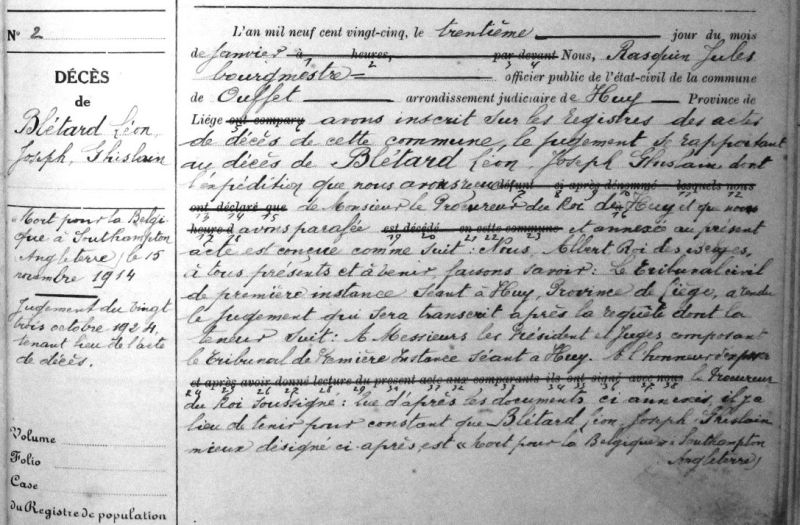 N° 2
DÉCÈS
de
Blétard Léon,
Joseph, Ghislain
Mort pour la Belgi-
que à Southampton
Angleterre, le 15
novembre 1914
Jugement du vingt
trois octobre 1924.
tenant lieu de l'acte
de décès.
Volume
Folio
Case
du Registre de population
L'an mil neuf cent vingt-cinq, le trentième jour du mois
de janvier à heures, par devant Nous, Rasquin Jules
bourgmestre officier public de l'état-civil de la commune
de Ouffet arrondissement judiciaire de Huy Province de
Liége ont compary avons inscrit sur les registres des actes
de décès de cette commune, le jugement se rapportant
au décès de Blétard Léon, Joseph Ghislain, dont
l'expédition que nous avons reçue défunt ci-après dénommé lesquels nous
ont déclaré que de Monsieur le Procureur du Roi de Huy et que nous
heure d avons parafée est décédé en cette commune et annexée au présent
acte est conçue comme suit : Nous, Albert Roi des Belges,
à tous présents et à venir, faisons savoir : Le Tribunal civil
de première instance séant à Huy, Province de Liége, a rendu
le jugement qui sera transcrit après la requête dont la
teneur suit : A Messieurs les Président et Juges composant
le Tribunal de Première Instance séant à Huy. A l'honneur d'exposer
et après avoir donné lecture du présent acte aux comparants ils ont signé avec nous le Procureur
du Roi soussigné : que d'après les documents ci annexés, il y a
lieu de tenir pour constant que Blétard Léon Joseph Ghislain
mieux désigné ci-après est « Mort pour la Belgique » Southampton
Angleterre)